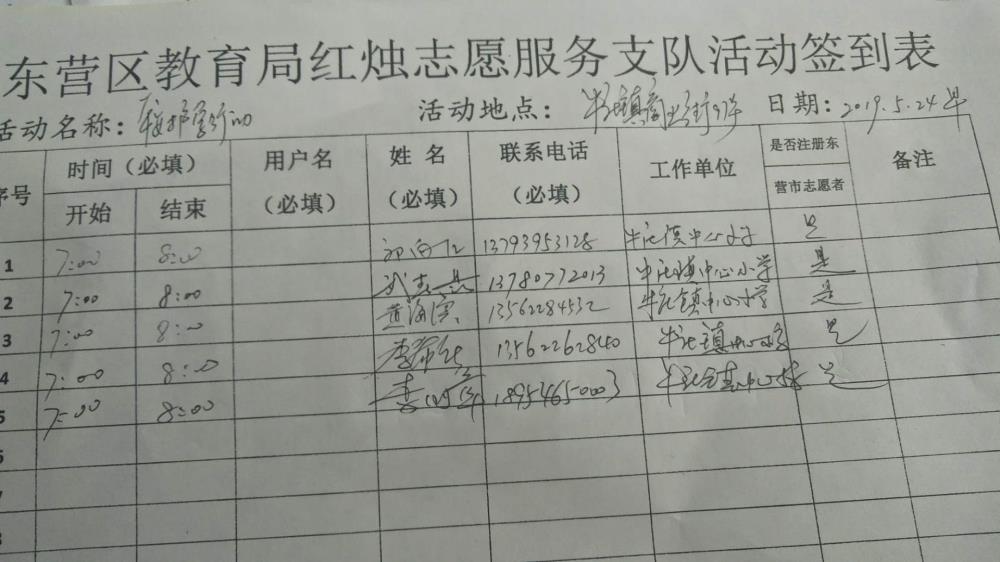 东营区教育局红烛志愿服务支队活动签到表
活动名称: 活动地点: 牛庄镇商业街 日期: 2019.5.24 早
序号 时间(必填) 用户名(必填) 姓名(必填) 联系电话(必填) 工作单位 是否注册东营市志愿者 备注
开始 结束
1 7:00 8:00 13793953128 牛庄镇中心小学 是
2 7:00 8:00 13780772013 牛庄镇中心小学 是
3 7:00 8:00 黄海滨 13562284532 牛庄镇中心小学 是
4 7:00 8:00 13562262840 牛庄镇中心小学 是
5 7:00 8:00 18954650003 牛庄镇中心小学 是